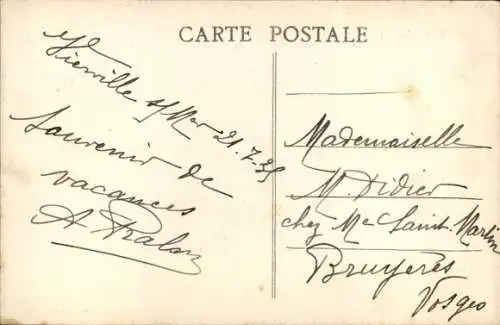 CARTE POSTALE
Vierville s/Mer 21.7.35
Souvenir de
vacances
A Ralon
Mademoiselle
M. Didier
chez Me Saint Martin
Bruyères
Vosges